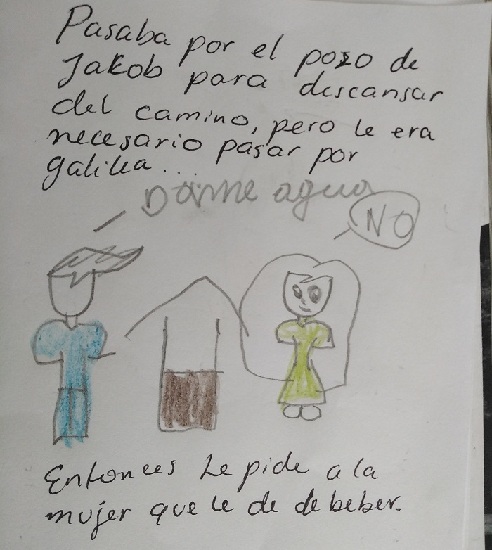 Pasaba por el pozo de
Jakob para descansar
del camino, pero le era
necesario pasar por
galilea...
Dame agua
NO
Entonces Le pide a la
mujer que le de de beber.